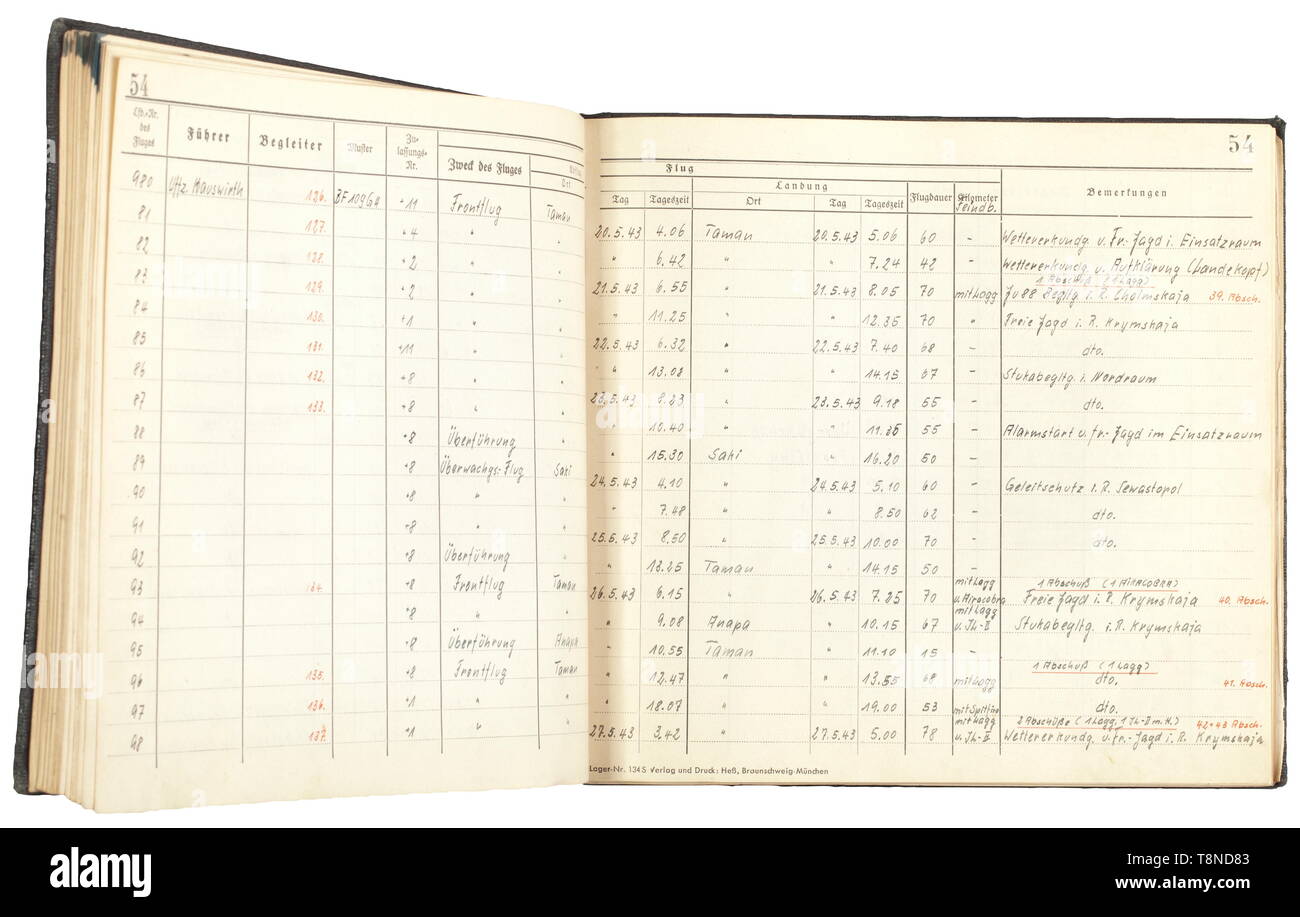 54
Lfd.-Nr. des Fluges Führer Begleiter Muster Zulassungs-Nr. Zweck des Fluges Ort
980 Uffz. Hauswirth 126. BF 109 G4 "11 Frontflug Taman
81 127. "4 " "
82 128. "2 " "
83 129. "2 " "
84 130. "1 " "
85 131. "11 " "
86 132. "8 " "
87 133. "8 " "
88 "8 Überführung "
89 "8 Überwachgs-Flug Saki
90 "8 " "
91 "8 " "
92 "8 Überführung "
93 134. "8 Frontflug Taman
94 "8 " "
95 "8 Überführung Anapa
96 135. "8 Frontflug Taman
97 136. "1 " "
98 137. "1 " "
54
Flug
Landung
Tag Tageszeit Ort Tag Tageszeit Flugdauer Kilometer Bemerkungen
Feindb.
20.5.43 4.06 Taman 20.5.43 5.06 60 - Wettererkundg. u. Fr.-Jagd i. Einsatzraum
" 6.42 " " 7.24 42 - Wettererkundg. u. Aufklärung (Landekopf)
1 Abschuß (1 Lagg)
21.5.43 6.55 " 21.5.43 8.05 70 mit Lagg Ju 88 Begltg i. R. Cholmskaja 39. Absch.
" 11.25 " " 12.35 70 " Freie Jagd i. R. Krymskaja
22.5.43 6.32 " 22.5.43 7.40 68 - dto.
" 13.08 " " 14.15 67 - Stukabegltg. i. Nordraum
23.5.43 8.23 " 23.5.43 9.18 55 - dto.
" 10.40 " " 11.35 55 - Alarmstart u. fr.-Jagd im Einsatzraum
" 15.30 Saki " 16.20 50 -
24.5.43 4.10 " 24.5.43 5.10 60 - Geleitschutz i. R. Sewastopol
" 7.48 " " 8.50 62 - dto.
25.5.43 8.50 " 25.5.43 10.00 70 - dto.
" 13.25 Taman " 14.15 50 -
mit Lagg 1 Abschuß (1 AIRACOBRA)
26.5.43 6.15 " 26.5.43 7.25 70 u. Airacobra Freie Jagd i. R. Krymskaja 40. Absch.
mit Lagg
" 9.08 Anapa " 10.15 67 u. JL-II Stukabegltg. i. R. Krymskaja
" 10.55 Taman " 11.10 15 -
1 Abschuß (1 Lagg)
" 12.47 " " 13.55 68 mit Lagg dto. 41. Absch.
" 18.07 " " 19.00 53 mit Spitfire dto.
mit Lagg 2 Abschüße (1 Lagg, 1 JL-II m.H.) 42+43 Absch.
27.5.43 3.42 " 27.5.43 5.00 78 u. JL-II Wettererkundg. u. Fr.-Jagd i. R. Krymskaja
Lager-Nr. 134 S Verlag und Druck: Heß, Braunschweig-München
alamy
Image ID: T8ND83
www.alamy.com